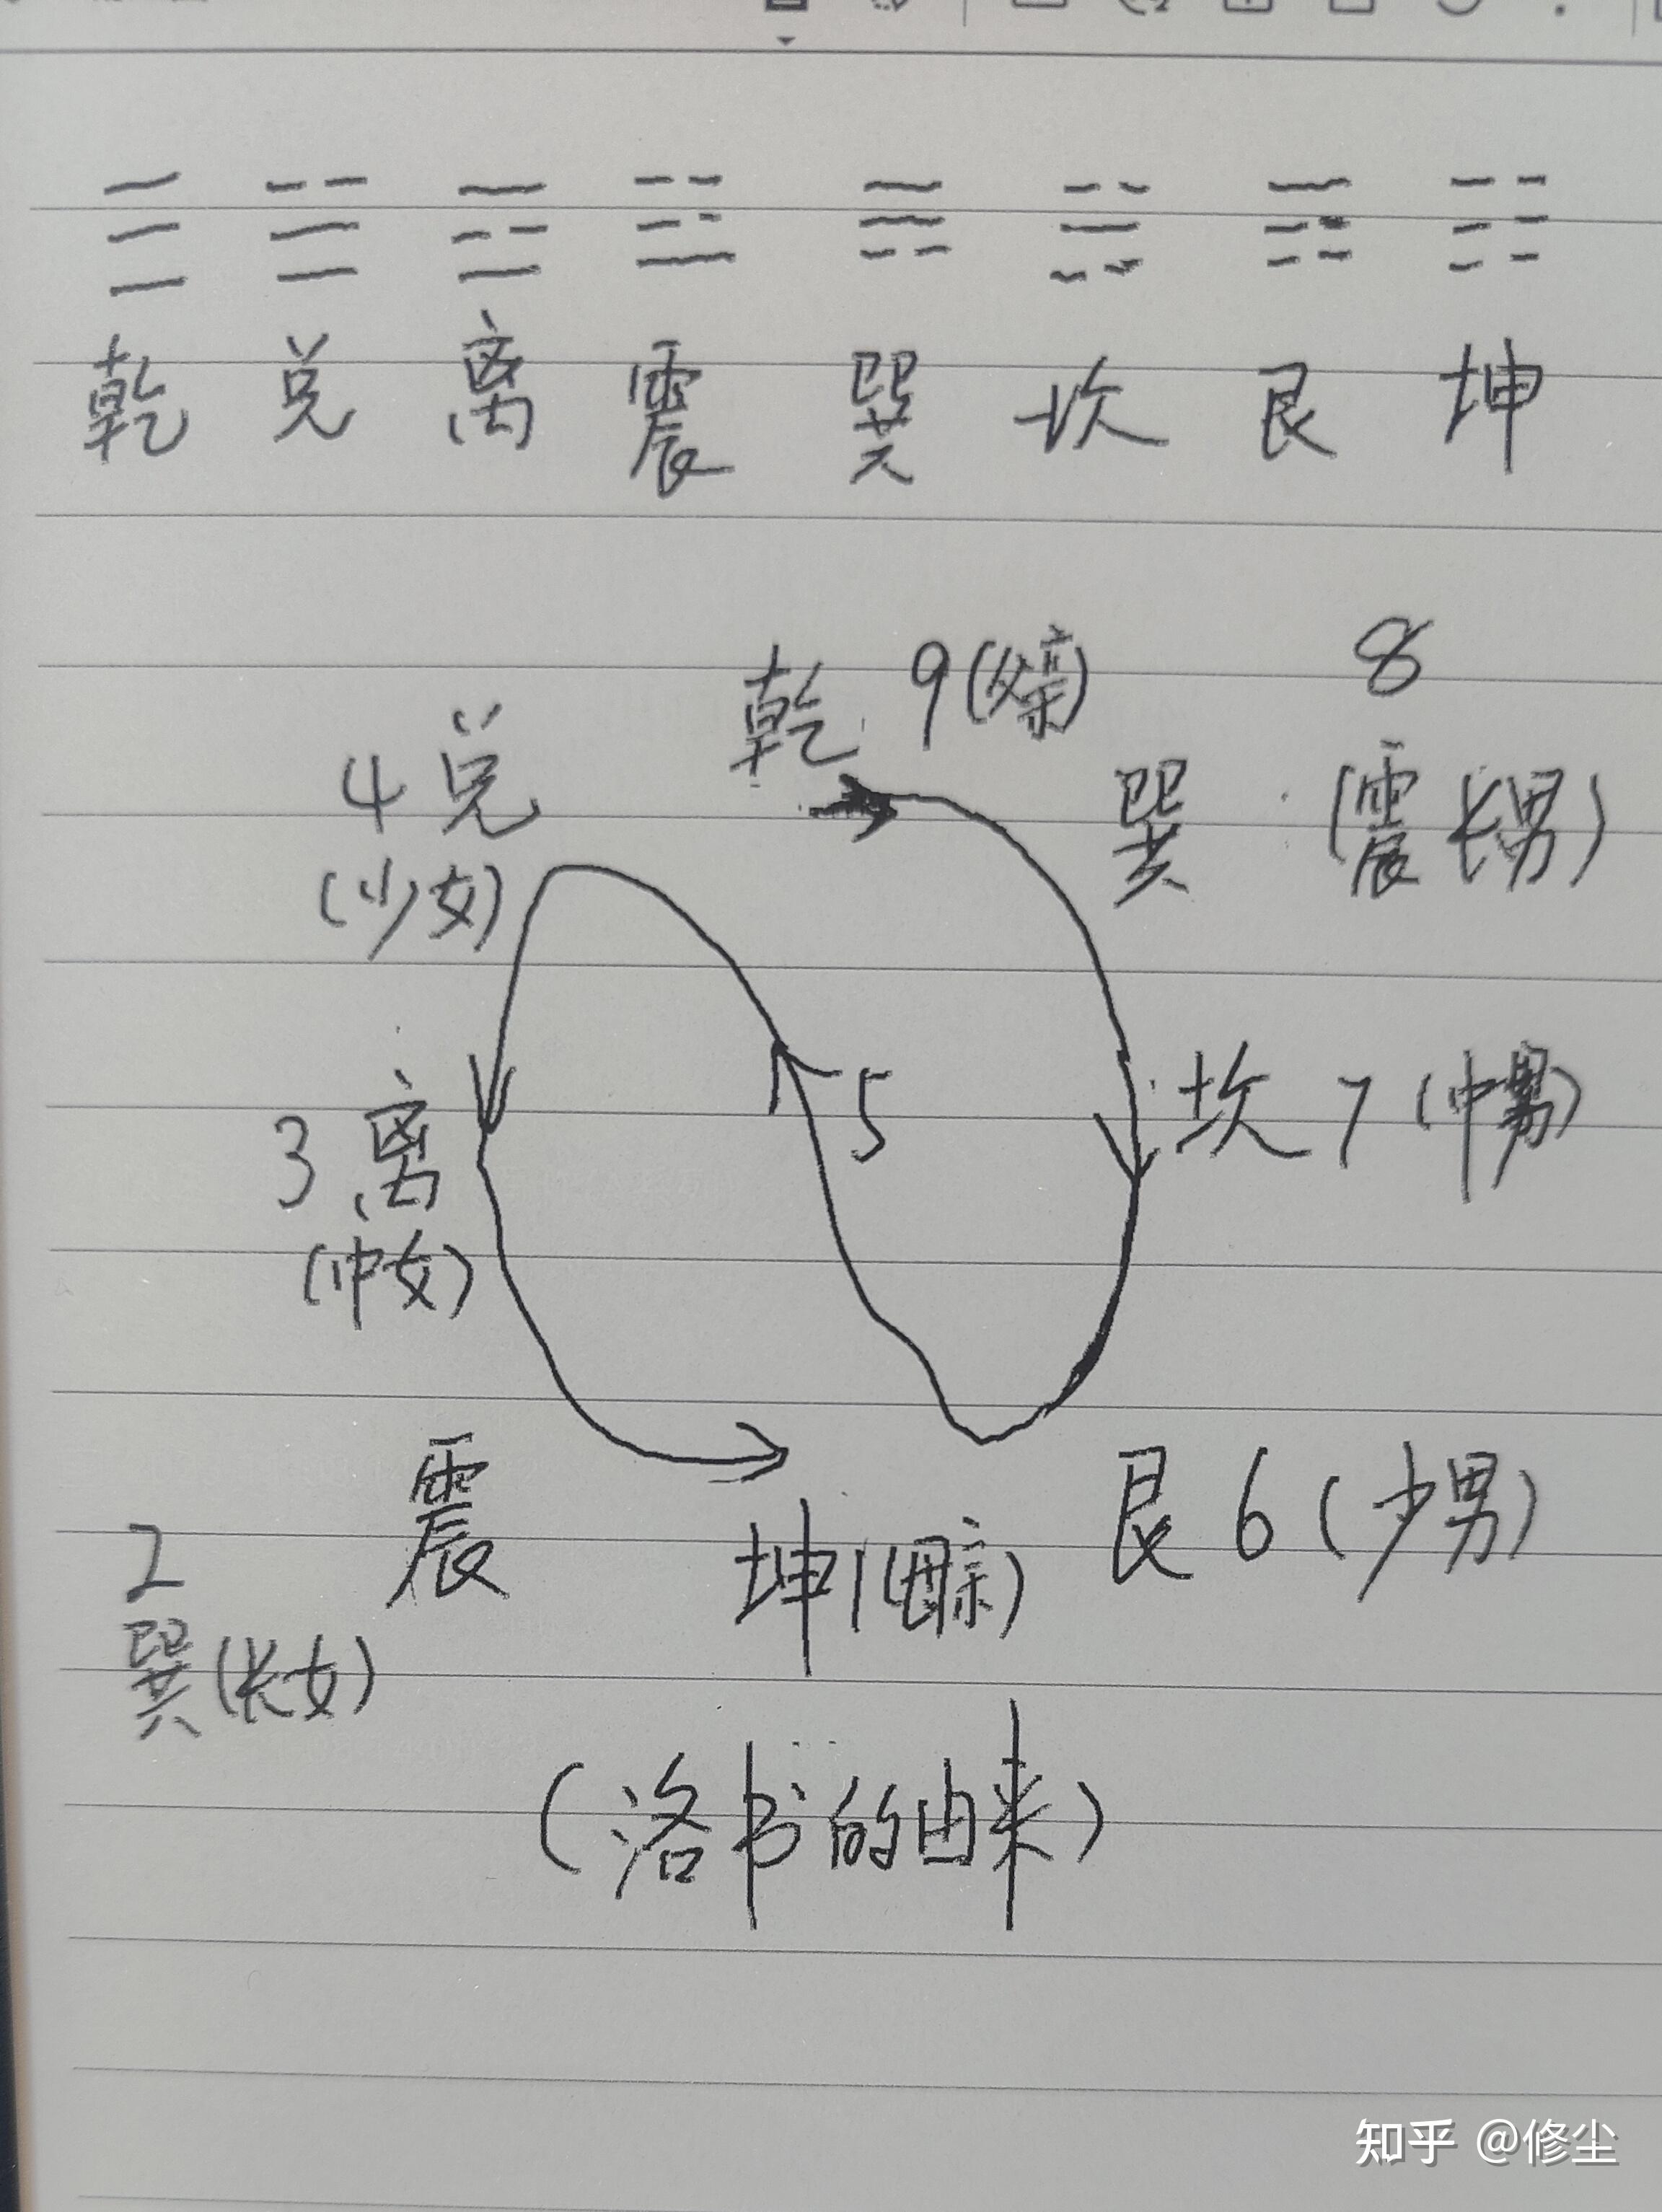 乾 兑 离 震 巽 坎 艮 坤
乾 9(父亲) 8
4 兑 巽 (震 长男)
(少女)
5 坎 7 (中男)
3 离
(中女)
震 艮 6 (少男)
2 坤 1 (母亲)
巽 (长女)
(洛书的由来)
知乎 @修尘